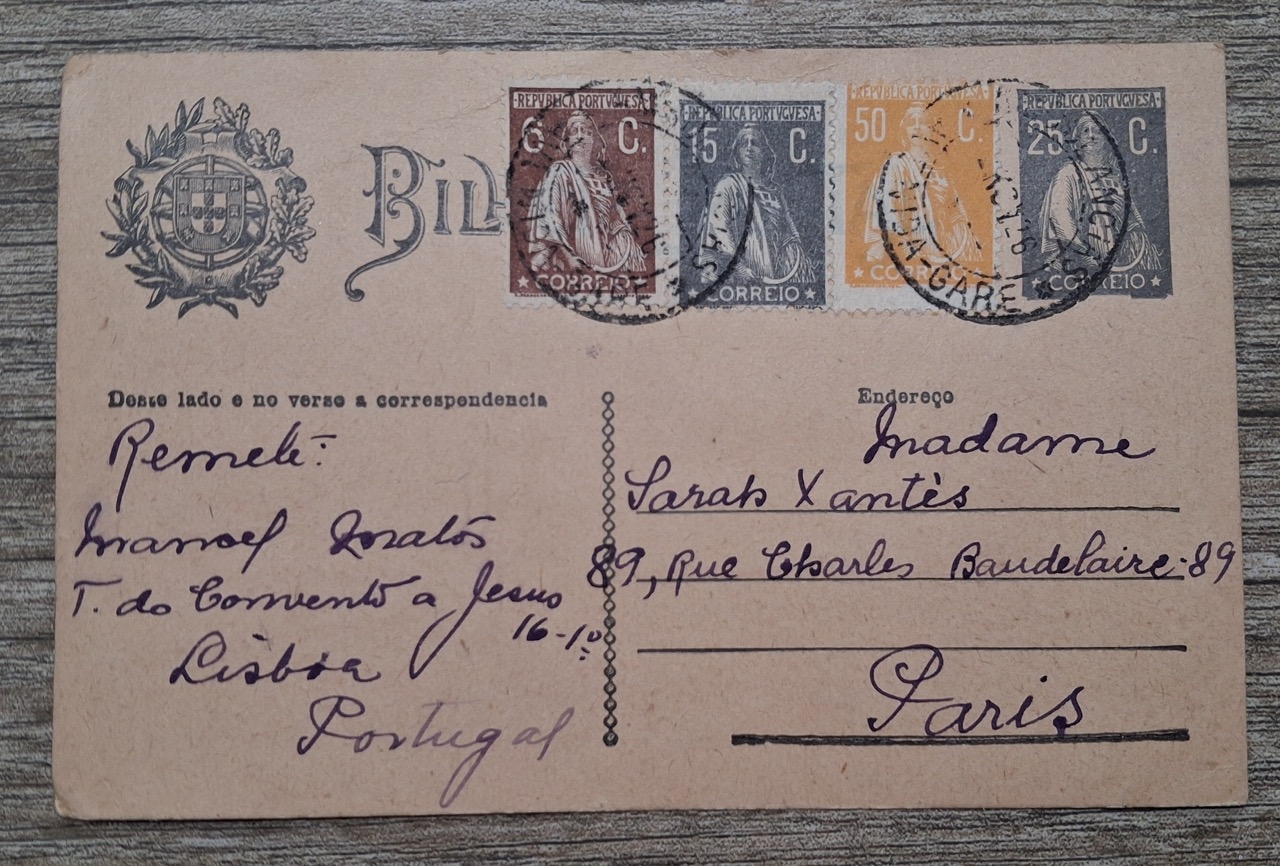 BILH
REPVBLICA PORTVGVESA
6 C.
CORREIO
REPVBLICA PORTVGVESA
15 C.
CORREIO
REPVBLICA PORTVGVESA
50 C.
CORREIO
REPVBLICA PORTVGVESA
25 C.
CORREIO
-GARE
Deste lado e no verso a correspondencia
Remete:
Manoel Matos
T. do Convento a Jesus
16-1º
Lisboa
Portugal
Endereço
Madame
Sarah Xantès
89, Rue Charles Baudelaire-89
Paris